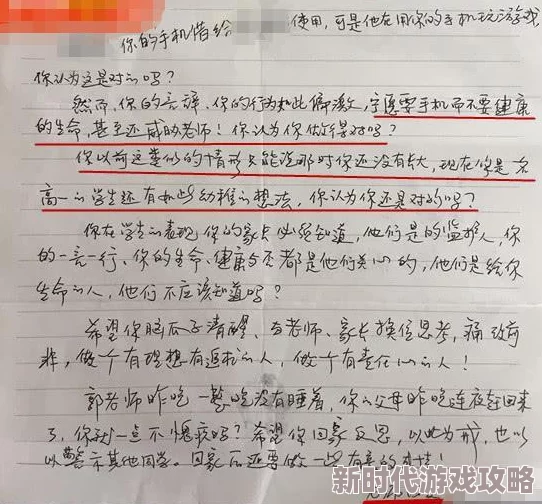 你的手机借给 使用，可是他在用你的手机玩游戏
你认为这是对的吗？
然而，你的言辞、你的行为如此偏激，宁愿要手机而不要健康
的生命，甚至还威胁老师！你认为你做得对吗？
你以前这类似的情形只能说那时你还没有长大，现在你是一名
高一的学生还有如此幼稚的想法，你认为你还是对的吗？
你在学生的表现，你的家长必须知道，他们是的监护人，你
的一言一行、你的生命、健康与否都是他们关心的，他们是给你
生命的人，他们不应该知道吗？
希望你脑瓜子清醒，与老师、家长换位思考，痛改前
非，做个有理想有追求的人，做个有责任心的人！
郭老师昨晚一整晚没有睡着，你的父母昨晚连夜赶回来
了，你就一点不愧疚吗？希望你回家反思，以此为戒，也以
以警示其他同学。回家后还要做一些有意的事情！
新时代游戏攻略